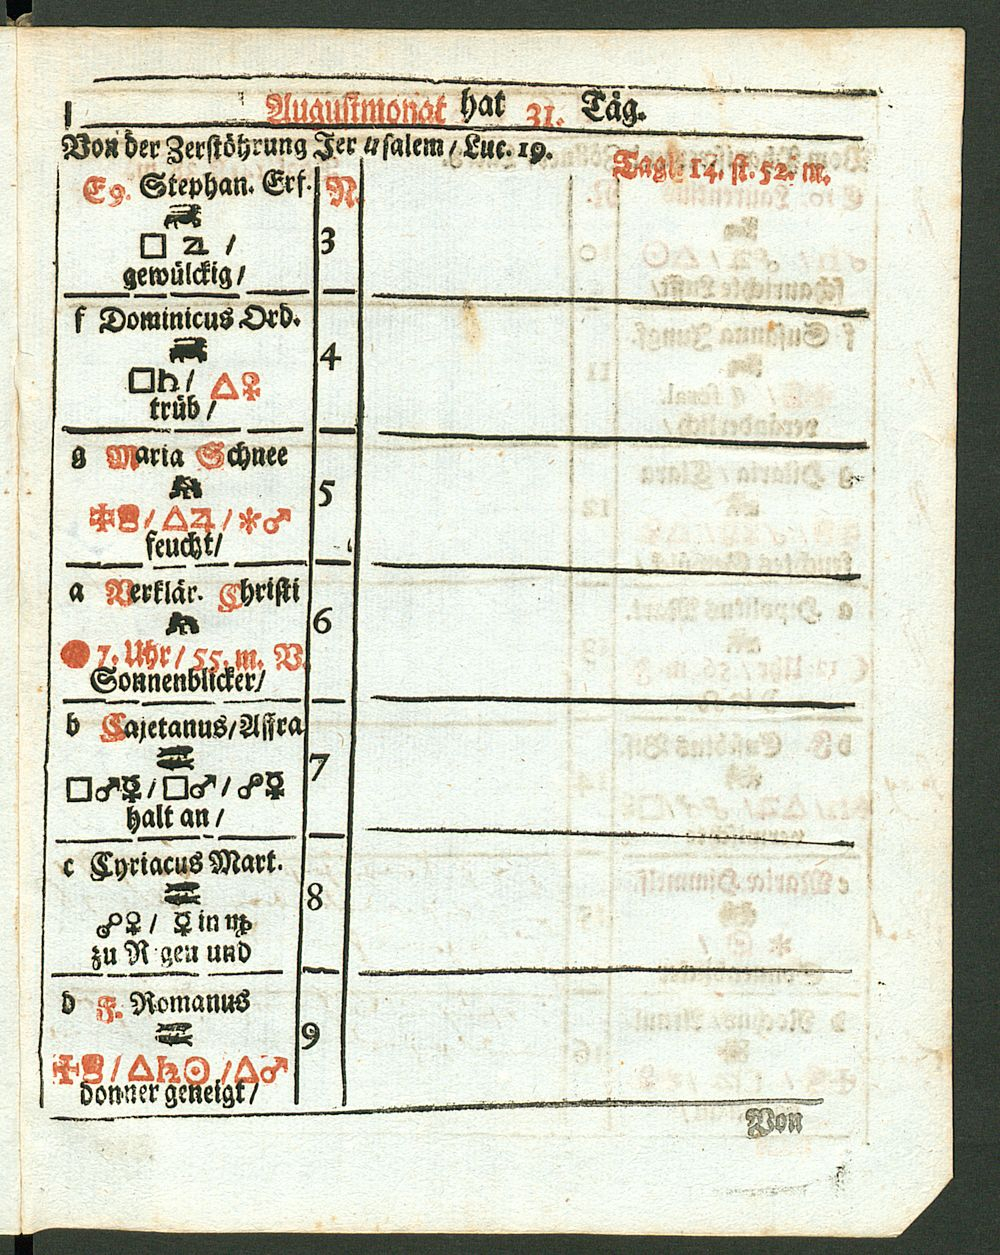 Augustmonat hat 31. Täg.
Von der Zerstöhrung Jerusalem / Luc. 19.
Tagl. 14. st. 52. m.
E 9. Stephan. Erf. N.
3
□ ♃ /
gewülckig /
f Dominicus Ord.
4
□ ♄ / △ ♀
trüb /
g Maria Schnee
5
/ △ ♃ / ✱ ♂
feucht /
a Verklär. Christi
6
● 7. Uhr / 55. m. V.
Sonnenblicker /
b Cajetanus / Affra
7
□ ♂ ☿ / □ ♂ / ☍ ☿
halt an /
c Cyriacus Mart.
8
☍ ♀ / ☿ in ♍
zu R gen und
d F. Romanus
9
/ △ ♄ ☉ / △ ♂
donner geneigt /
Von